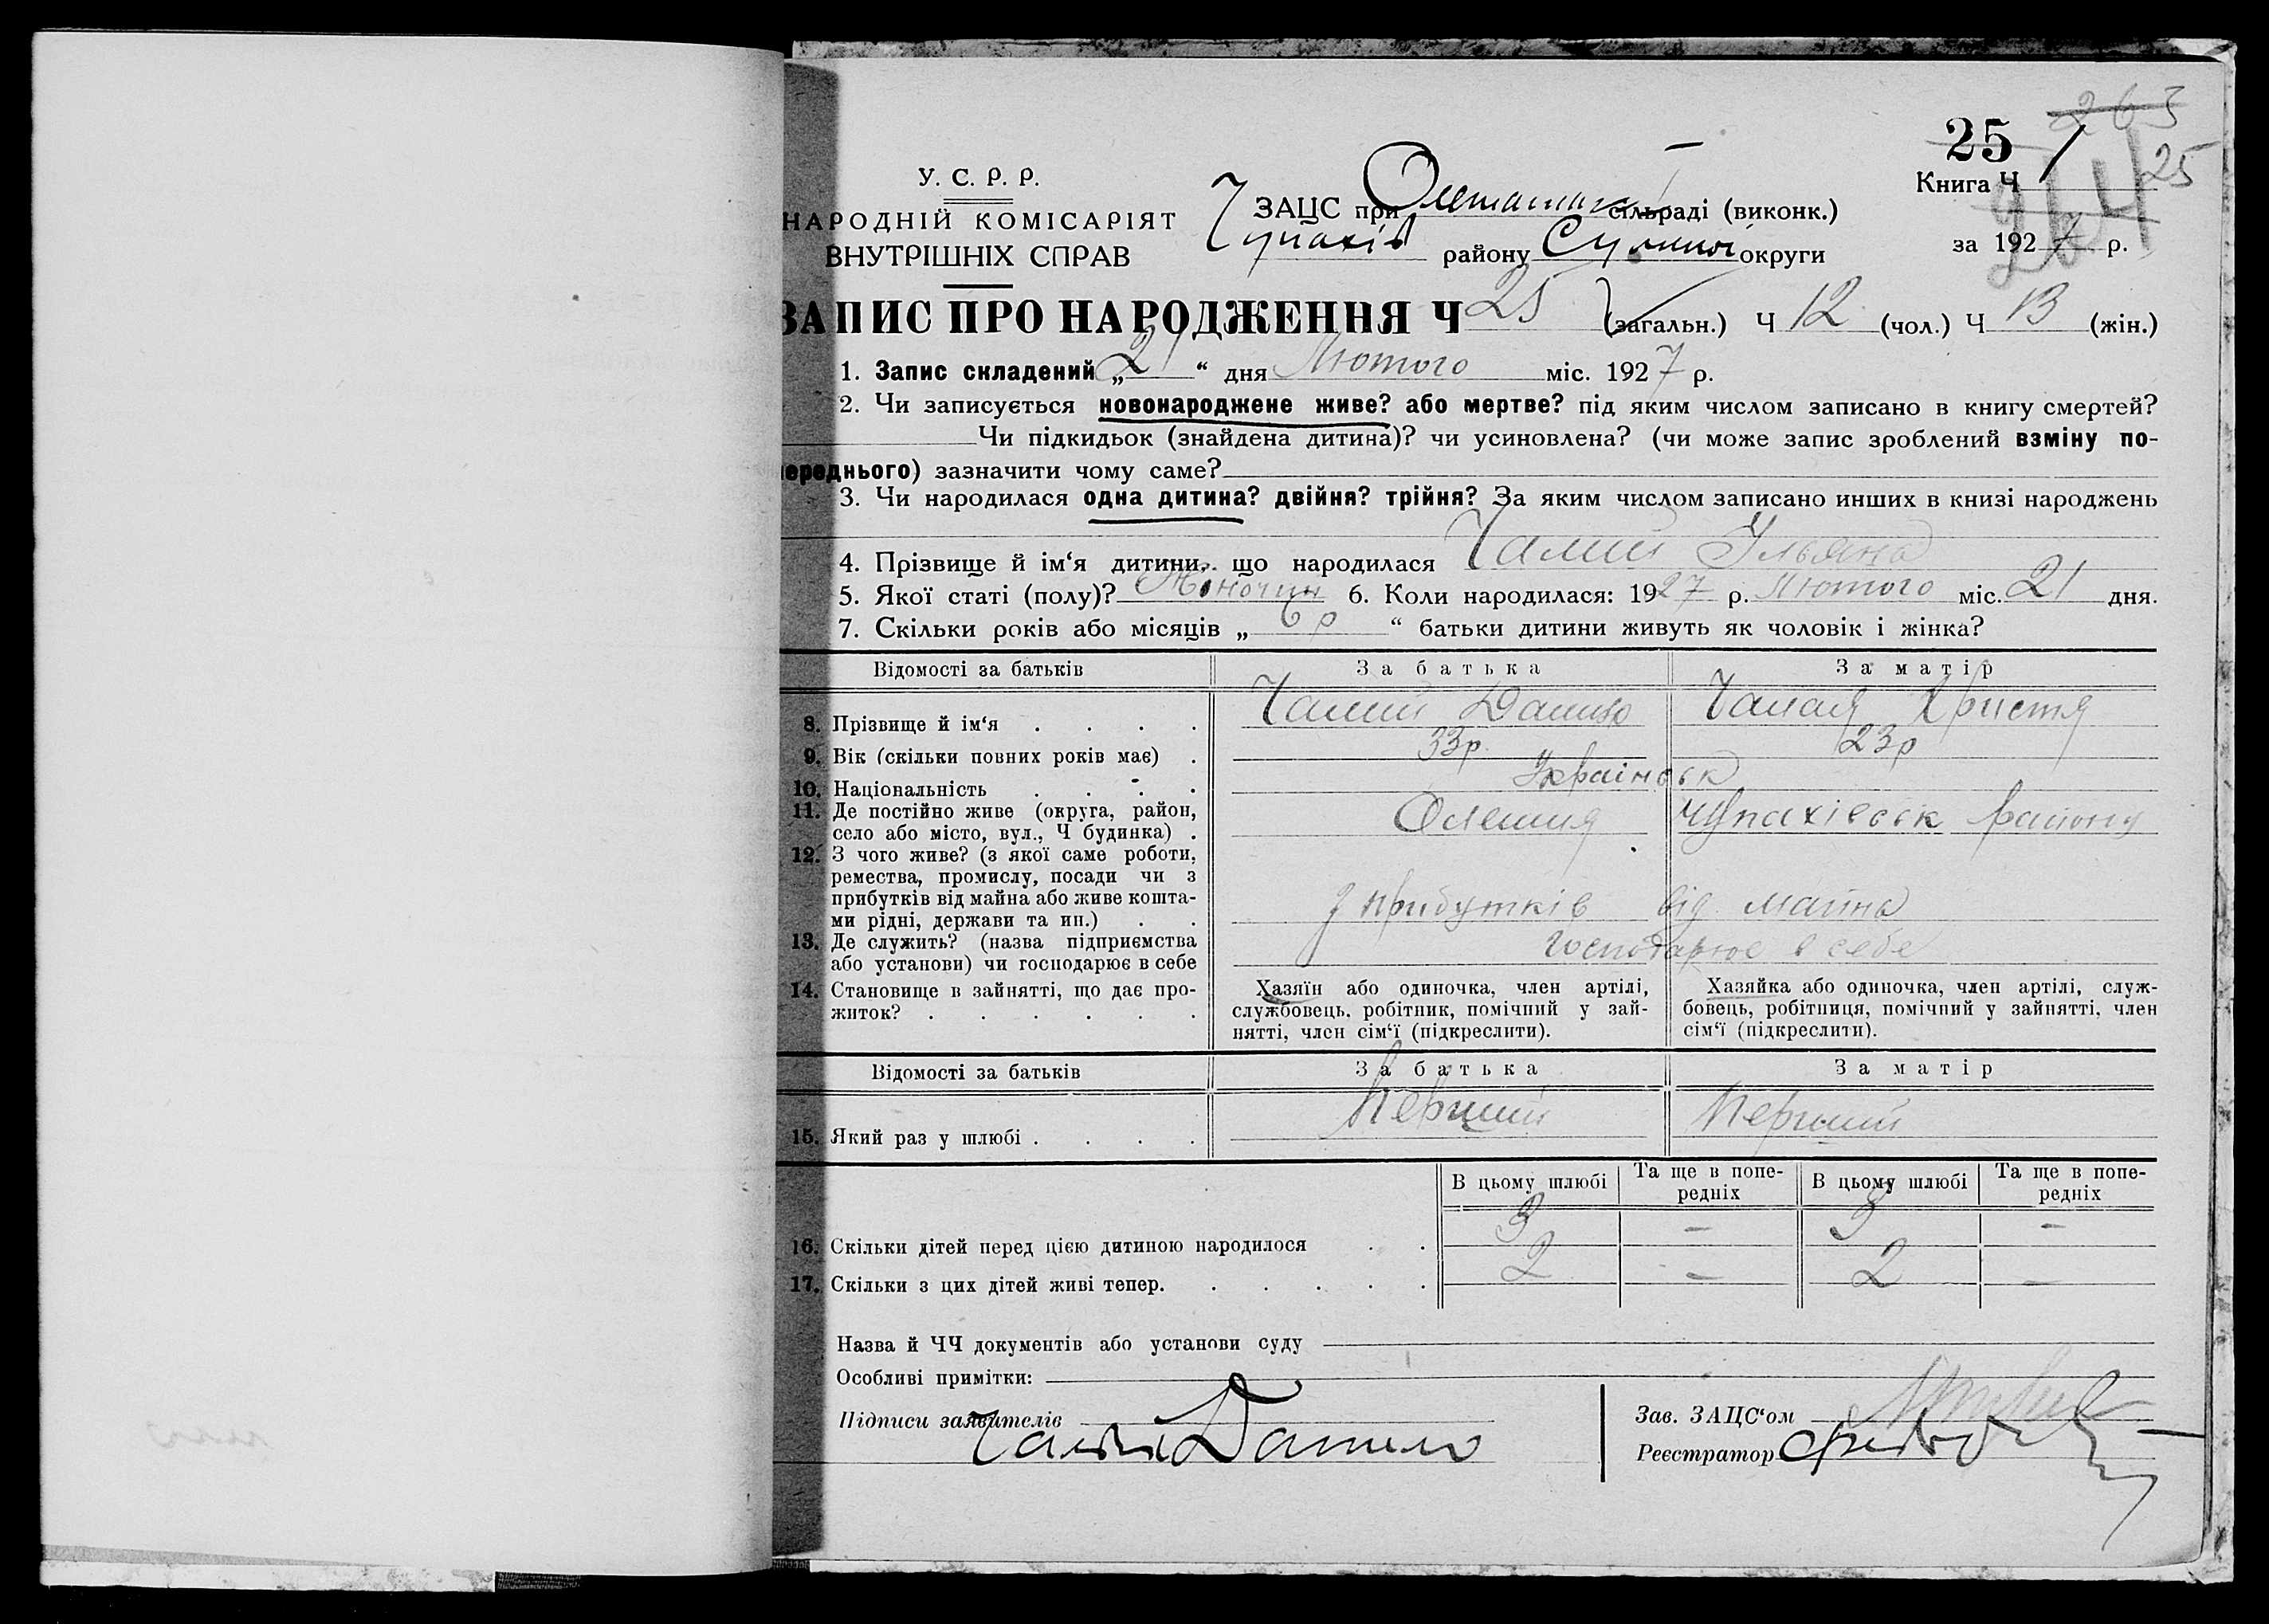 263
25 1 25
264
У. С. Р. Р.
НАРОДНІЙ КОМІСАРІЯТ
ВНУТРІШНІХ СПРАВ
Книга Ч
ЗАЦС при сільраді (виконк.)
Чупахів району Сумської округи
за 1927 р.
ЗАПИС ПРО НАРОДЖЕННЯ Ч 25 (загальн.) Ч 12 (чол.) Ч 13 (жін.)
1. Запис складений „21“ дня Лютого міс. 1927 р.
2. Чи записується новонароджене живе? або мертве? під яким числом записано в книгу смертей?
Чи підкидьок (знайдена дитина)? чи усиновлена? (чи може запис зроблений взміну по-
переднього) зазначити чому саме?
3. Чи народилася одна дитина? двійня? трійня? За яким числом записано инших в книзі народжень
4. Прізвище й ім‘я дитини, що народилася Чалий Ульяна
5. Якої статі (полу)? Жіночин 6. Коли народилася: 1927 р. Лютого міс. 21 дня.
7. Скільки років або місяців „6 р“ батьки дитини живуть як чоловік і жінка?
Відомості за батьків За батька За матір
8. Прізвище й ім‘я . . . . Чалий Данило Чалая Христя
9. Вік (скільки повних років має) . 33р. 23р
10. Національність . . . . Українськ
11. Де постійно живе (округа, район,
село або місто, вул., Ч будинка) . Олешня Чупахівськ району
12. З чого живе? (з якої саме роботи,
ремества, промислу, посади чи з
прибутків від майна або живе кошта-
ми рідні, держави та ин.) . . З прибутків від майна
13. Де служить? (назва підприємства
або установи) чи господарює в себе Господарює в себе
14. Становище в зайнятті, що дає про-
житок? . . . . . .
Хазяїн або одиночка, член артілі,
службовець, робітник, помічний у зай-
нятті, член сім‘ї (підкреслити).
Хазяйка або одиночка, член артілі, служ-
бовець, робітниця, помічний у зайнятті, член
сім‘ї (підкреслити).
Відомості за батьків За батька За матір
15. Який раз у шлюбі . . . . Перший Перший
В цьому шлюбі Та ще в попе-
редніх В цьому шлюбі Та ще в попе-
редніх
16. Скільки дітей перед цією дитиною народилося . . 3 – 3 –
17. Скільки з цих дітей живі тепер. . . . . . 2 – 2 –
Назва й ЧЧ документів або установи суду
Особливі примітки:
Підписи заявителів
Чалий Данило
Зав. ЗАЦС‘ом
Реєстратор